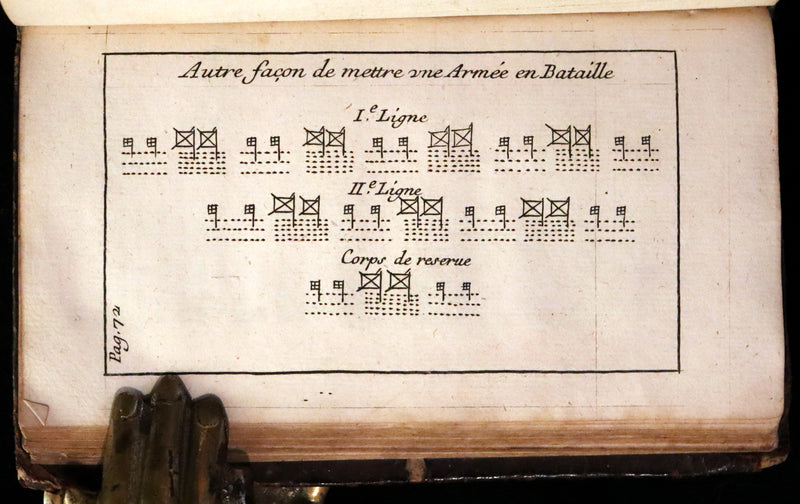 Autre façon de mettre vne Armée en Bataille
I.e Ligne
II.e Ligne
Corps de reserue
Pag. 72